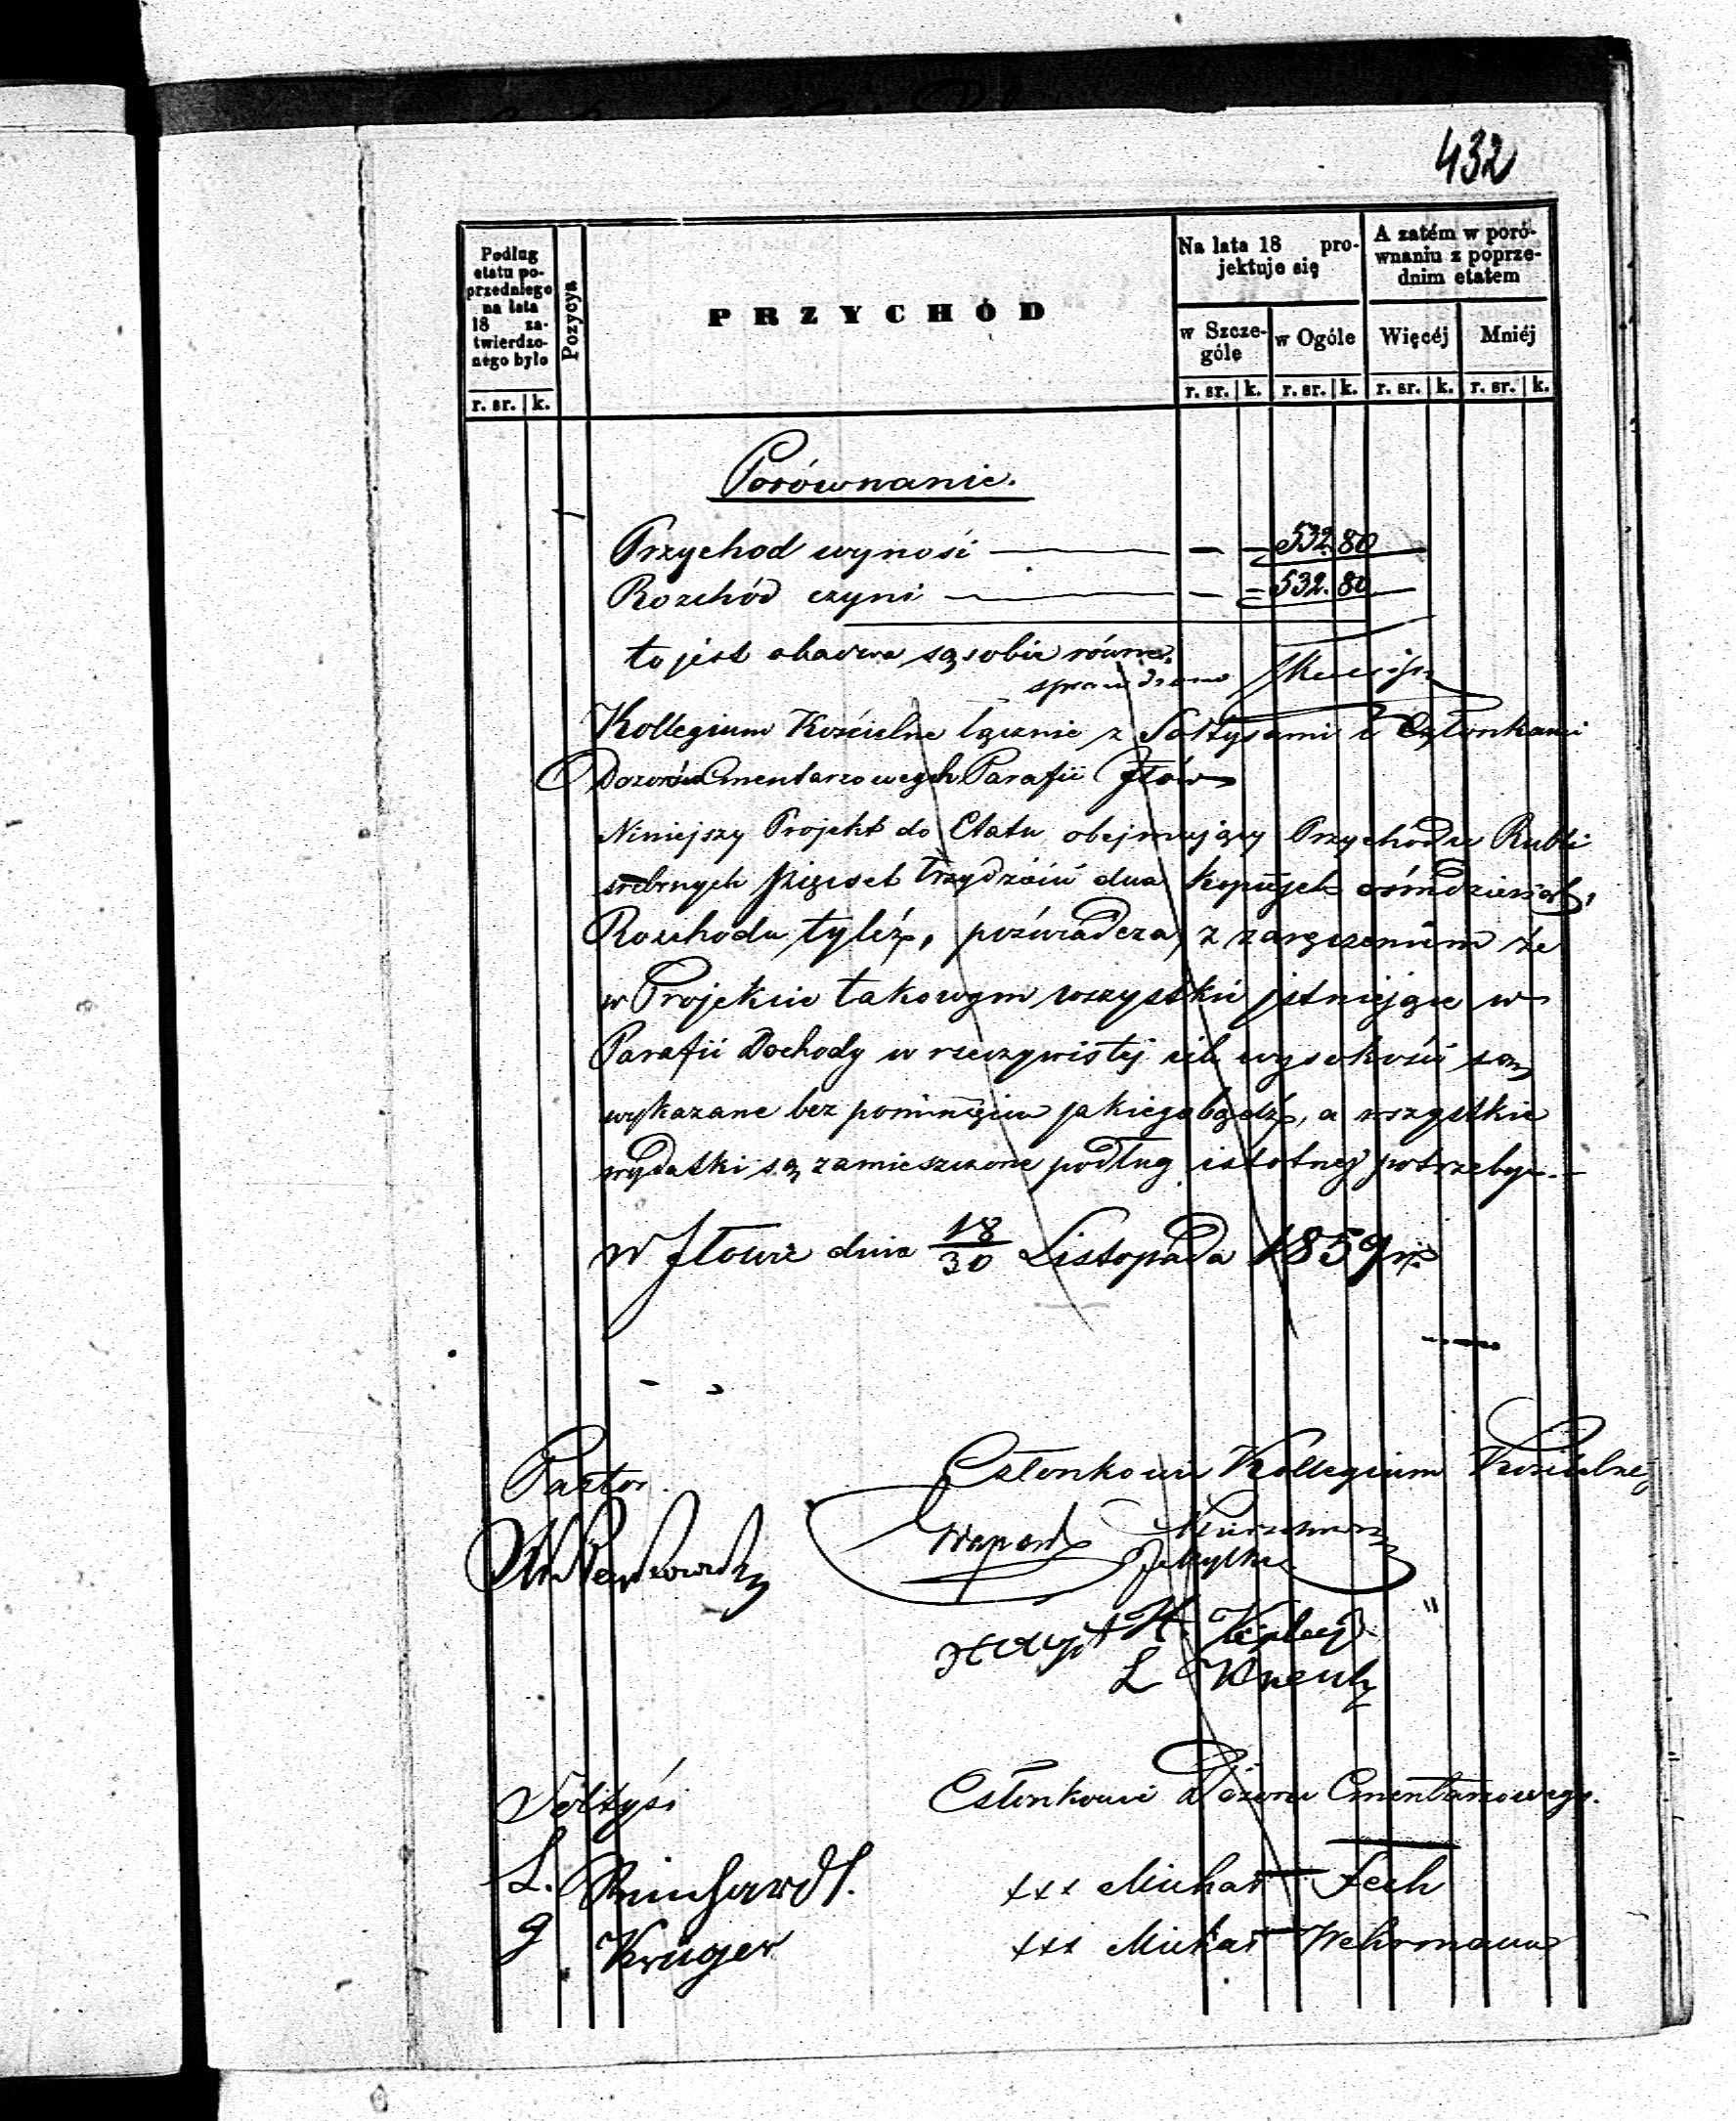 432
Podług
etatu po-
przedniego
na lata
18 za-
twierdzo-
nego było
Pozycya
PRZYCHÓD
Na lata 18 pro-
jektuje się
A zatém w poró-
wnaniu z poprze-
dnim etatem
w Szcze-
góle
w Ogóle
Więcéj
Mniéj
r. sr. k.
r. sr. k. r. sr. k. r. sr. k. r. sr. k.
Porównanie.
Przychod wynosi — — — 532.80 —
Rozchód czyni — — — 532.80 —
to jest obadwa są sobie równe.
sprawdzono
Kollegium Kościelne łącznie z Sołtysami i Członkami
Dozorów Cmentarzowych Parafii Jłów
Niniejszy Projekt do Etatu obejmujący Przychodu Rubli
srebrnych pięćset trzydzieści dwa kopiejek ośmdziesiąt,
Rozchodu tyleż, poświadcza z zaręczeniem że
w Projekcie takowym wszystkie jstniejące w
Parafii Dochody w rzeczywistej ich wysokości są
wykazane bez pominięcia jakiegobądź, a wszystkie
wydatki są zamieszczone podług istotnej potrzeby.—
w Jłowie dnia 18/30 Listopada 1859 r.
Pastor.
Członkowie Kollegium Kościelnego
H.
L
Sołtysi
Członkowie Dozoru Cmentarzowego.
L. Reinhardt.
+++ Michał Fech
G Krüger
+++ Michał Wehrmann